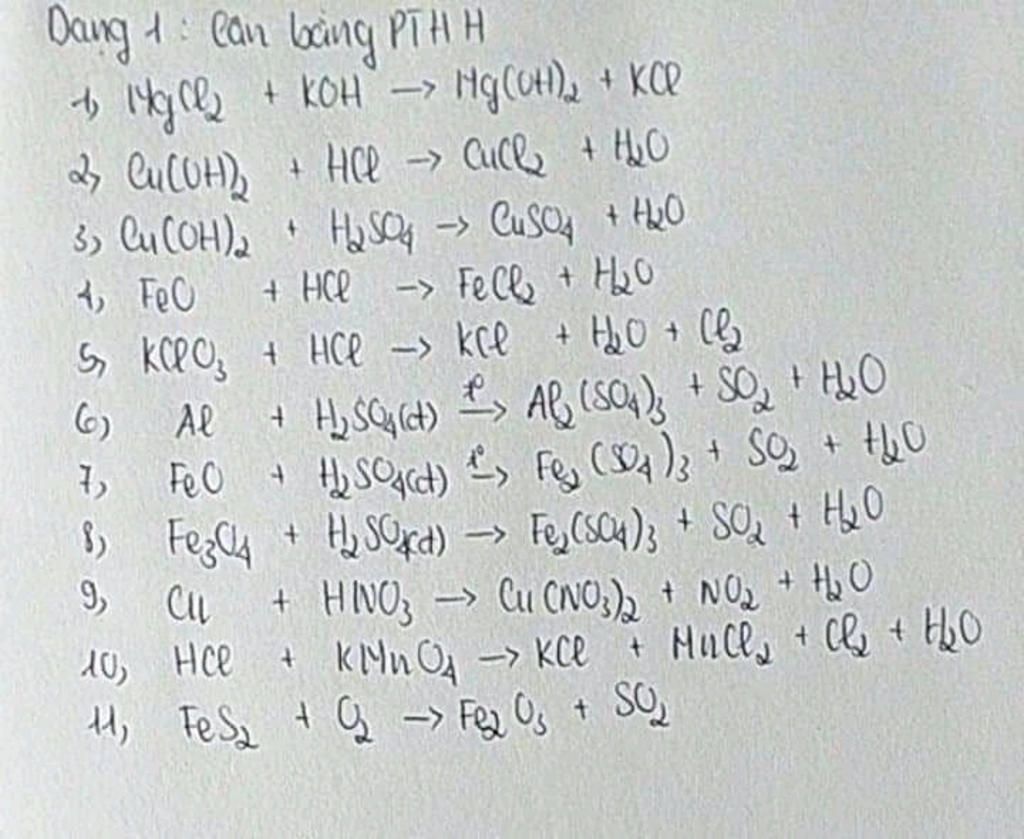 Dạng 1: Cân bằng PTHH
1, MgCl₂ + KOH → Mg(OH)₂ + KCl
2, Cu(OH)₂ + HCl → CuCl₂ + H₂O
3, Cu(OH)₂ + H₂SO₄ → CuSO₄ + H₂O
4, FeO + HCl → FeCl₂ + H₂O
5, KClO₃ + HCl → KCl + H₂O + Cl₂
6, Al + H₂SO₄(đ) t°→ Al₂(SO₄)₃ + SO₂ + H₂O
7, FeO + H₂SO₄(đ) t°→ Fe₂(SO₄)₃ + SO₂ + H₂O
8, Fe₃O₄ + H₂SO₄(đ) → Fe₂(SO₄)₃ + SO₂ + H₂O
9, Cu + HNO₃ → Cu(NO₃)₂ + NO₂ + H₂O
10, HCl + KMnO₄ → KCl + MnCl₂ + Cl₂ + H₂O
11, FeS₂ + O₂ → Fe₂O₃ + SO₂